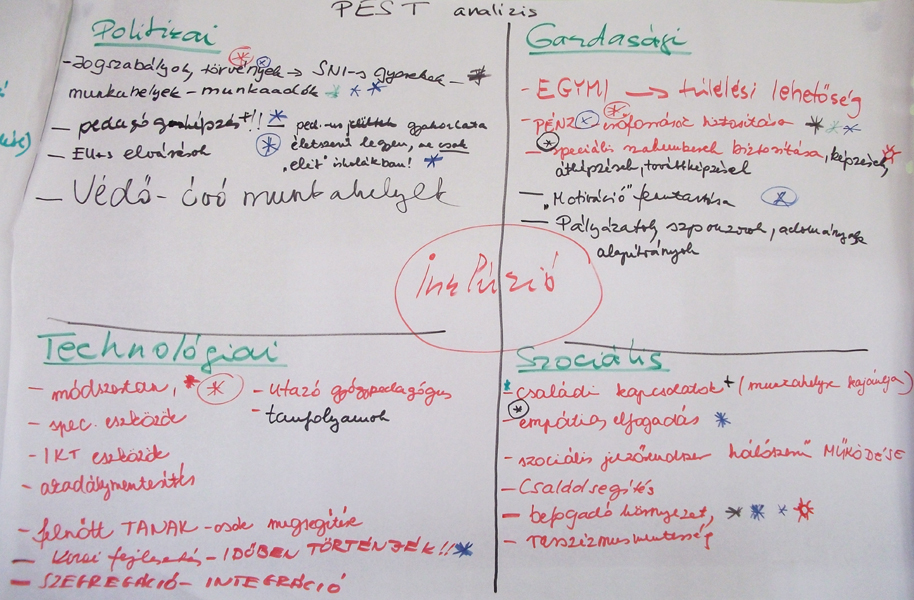 PEST analízis
Politikai
- Jogszabályok, törvények → SNI-s gyerekek -
munkahelyek - munkaadók
- pedagógusképzés +!! - ped.-us jelöltek gyakorlata
életszerű legyen, ne csak
"elit" iskolákban!
- EU-s elvárások
- Védő- óvó munkahelyek
Gazdasági
- EGYMI → túlélési lehetőség
- PÉNZ - erőforrások biztosítása
- speciális szakemberek biztosítása, képzések,
átképzések, továbbképzések
- "Motiváció" fenntartása
- Pályázatok, szponzorok, adományok,
alapítványok
Inklúzió
Technológiai
- módszertan,
- spec. eszközök
- IKT eszközök
- akadálymentesítés
- utazó gyógypedagógus
- tanfolyamok
- felnőtt TANAK-osok megsegítése
- Korai fejlesztés - IDŐBEN TÖRTÉNJÉK!!
- SZEGREGÁCIÓ - INTEGRÁCIÓ
Szociális
- családi kapcsolatok + (munkahelyek
- empátia, elfogadás
- szociális hálószerű MŰKÖDÉSE
- Családsegítés
- befogadó környezet,
- rasszizmusmentesség